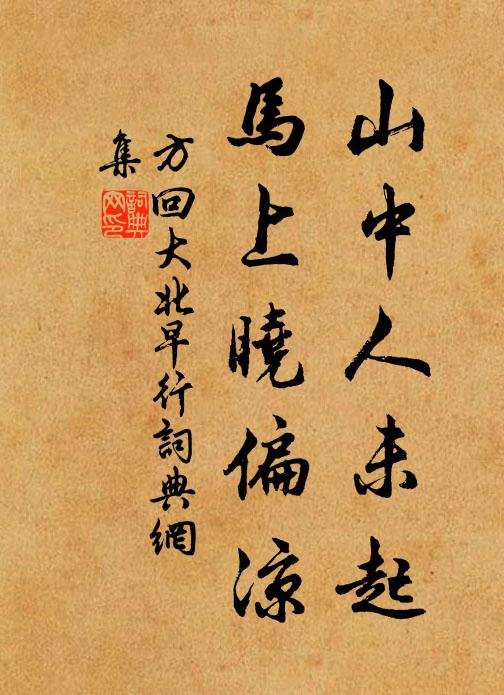 山中人未起
馬上曉偏涼
方回大北早行詞典網
集
詞典
网印